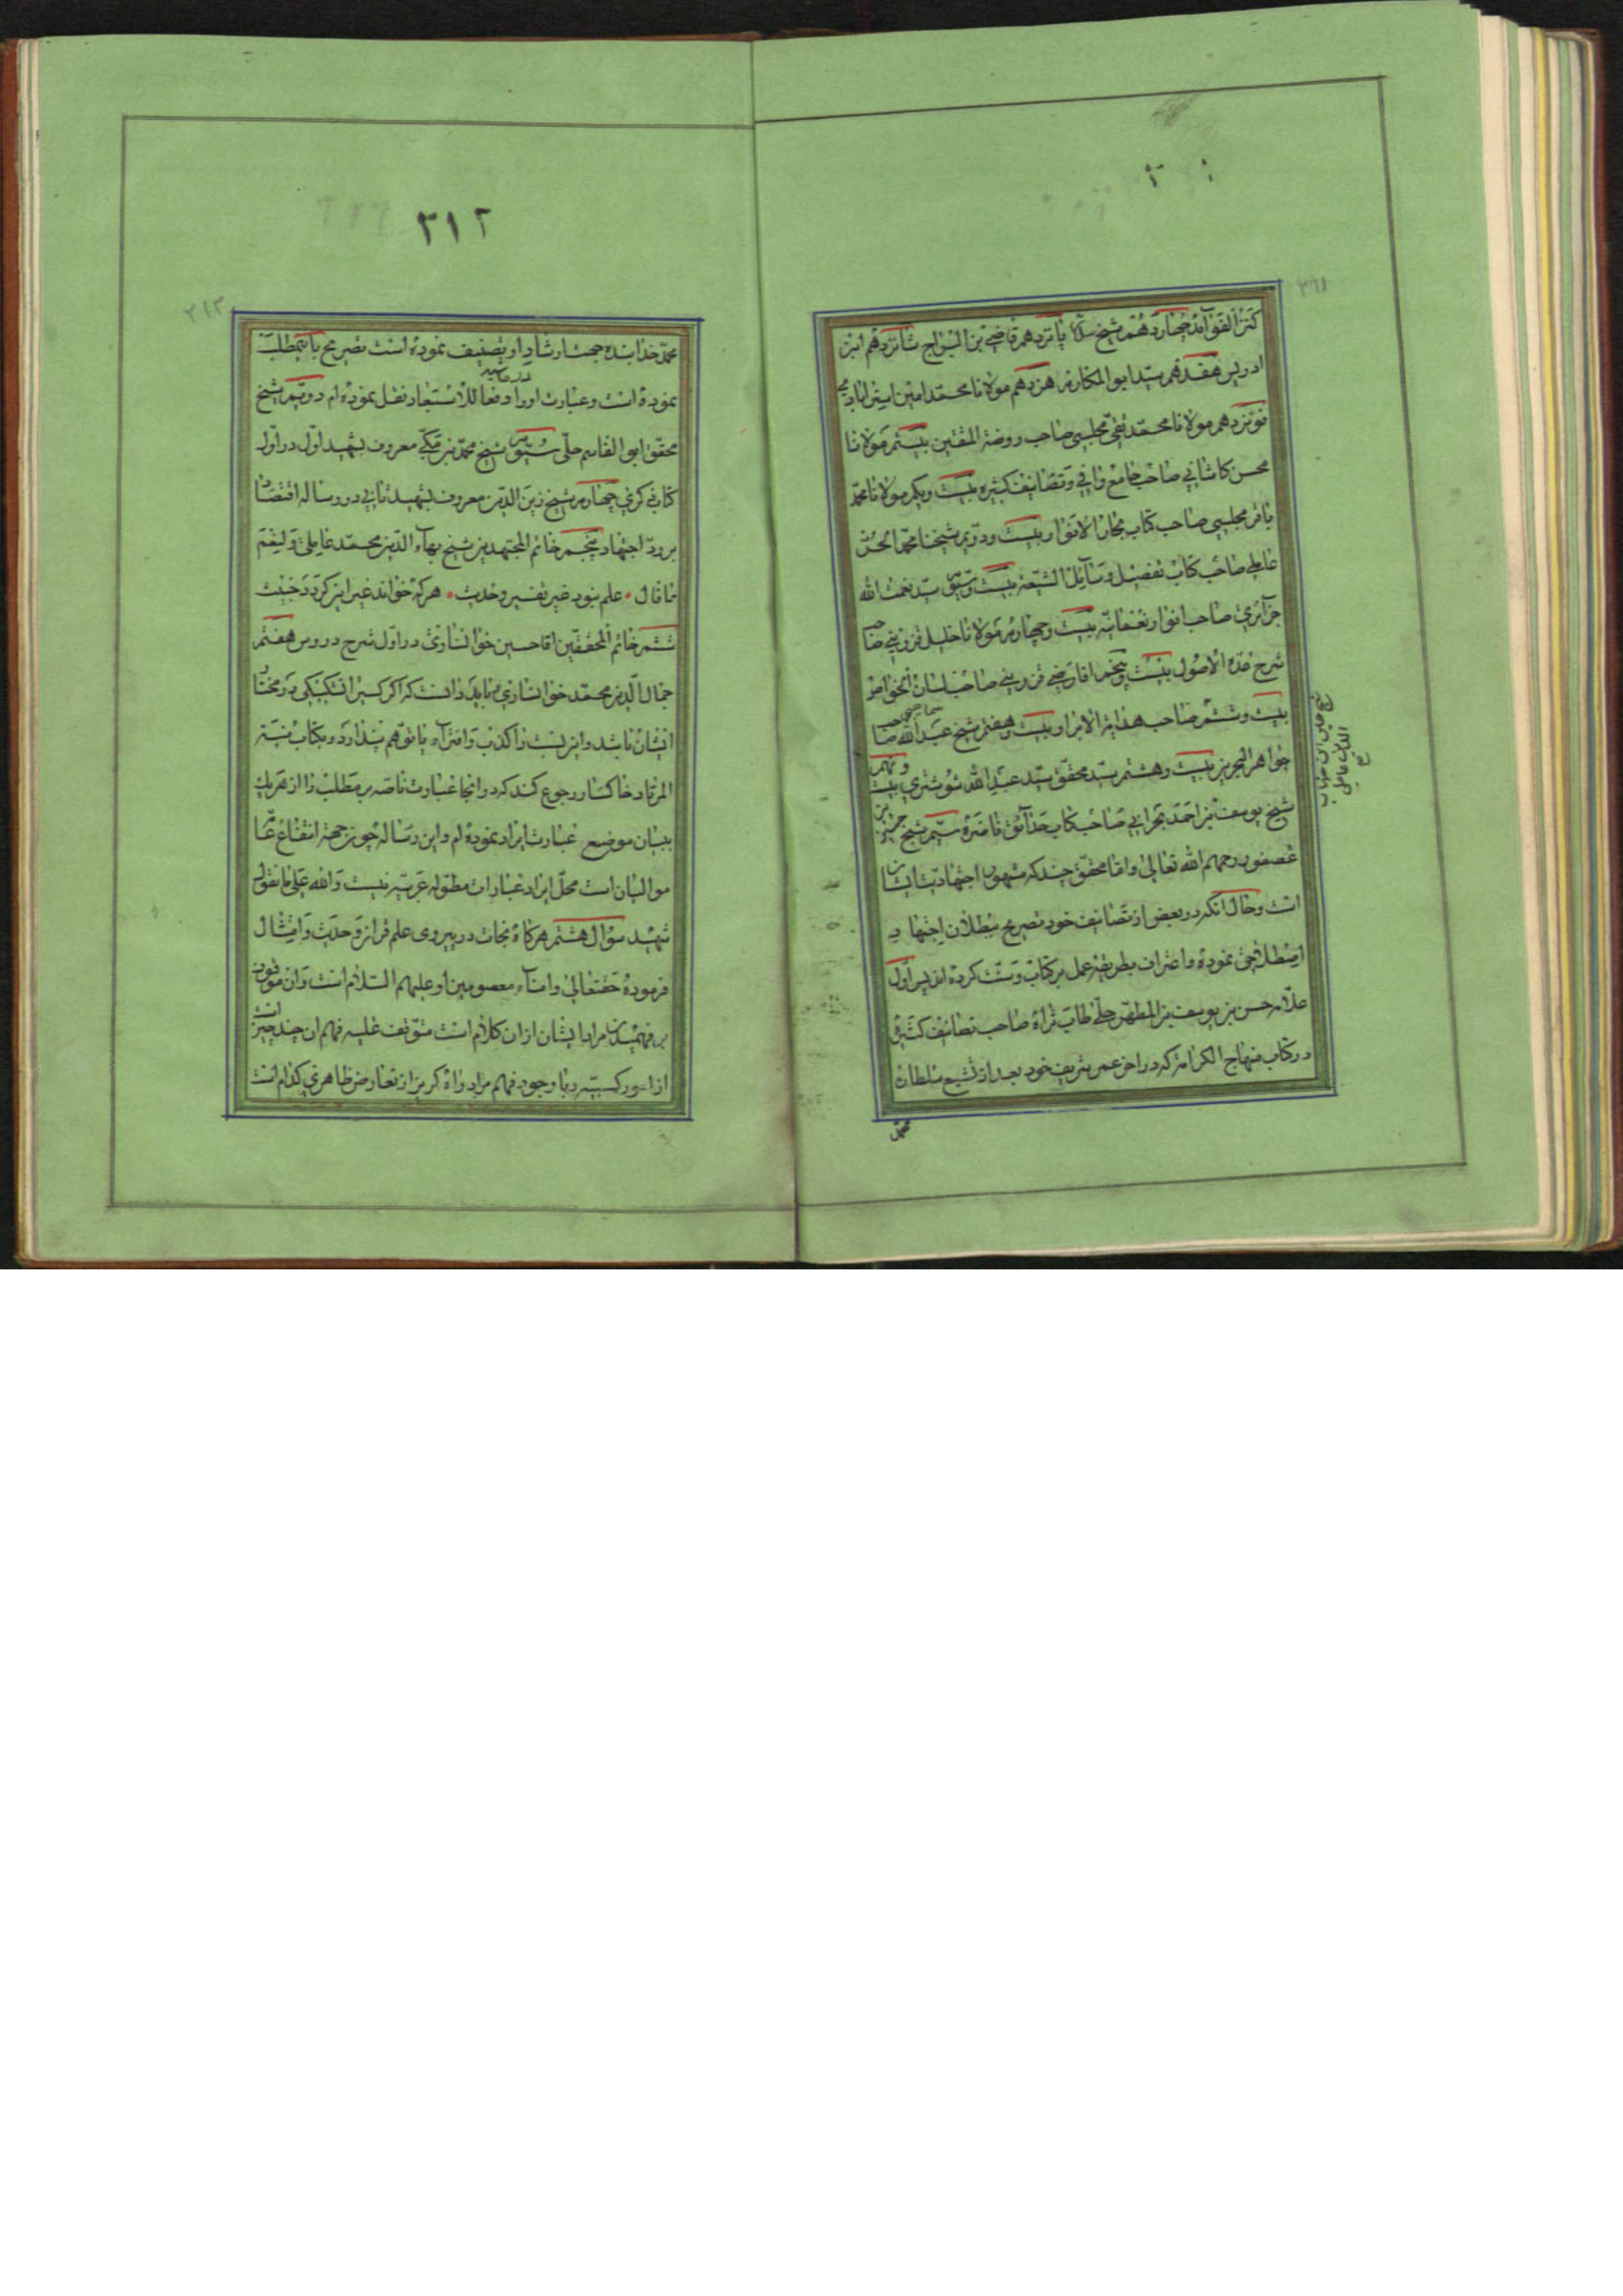 کنز الفوآئد چهاردهم شیخ سلار پانزدهم قاضی بن البراج شانزدهم ابن
ادریس هفدهم سید ابو المکارم هژدهم مولانا محمد امین استرابادی
نوزدهم مولانا محمد تقی مجلسی صاحب روضة المتقین بیستم مولانا
محسن کاشانی صاحب جامع وافی و تصانیف کثیره بیست و یکم مولانا محمد
باقر مجلسی صاحب کتاب بحار الانوار بیست و دویم شیخنا محمد الحر
عاملی صاحب کتاب تفصیل وسآیل الشیعه بیست و سیّم سید نعمت الله
جزآئری صاحب انوار نعمانیه بیست و چهارم مولانا خلیل قزوینی صاحب
شرح عدة الاصول بیست و پنجم اقا رضی قزوینی صاحب لسان الخواص
بیست و ششم صاحب هدایة الابرار بیست و هفتم شیخ عبد الله صاحب
جواهر البحرین بیست و هشتم سید محقق سید عبد الله شوشتری بیست و نهم
شیخ یوسف بن احمد بحرانی صاحب کتاب حدآئق ناضره سیم شیخ حسین بن
عصفور رحمهم الله تعالی و اما محقق چند که مشهور اجتهادیت ایشان
است و حال انکه در بعض از تصانیف خود تصریح ببطلان اجتهاد
اصطلاحی نموده و اعتراف بطریقه عمل بر کتاب و سنت کرده اند پس اول
علامه حسن بن یوسف بن المطهر حلی طاب ثراه صاحب تصانیف کثیره
در کتاب منهاج الکرامه که در اخر عمر شریف خود بعد از تشیع سلطان
محمد
۲۱۲
۲۱۲
محمد خدابنده جهت ارشاد او تصنیف نموده است تصریح باینمطلب
نموده است و عبارت او را دفعا للاستبعاد نقل نموده ام دویّم شیخ
در حاشیه
محقق ابو القاسم حلی سیّم شیخ محمد بن مکی معروف بشهید اول در اول
کتاب ذکری چهارم شیخ زین الدین معروف بشهید ثانی در رساله اقتصاد
بر رد اجتهاد پنجم خاتم المجتهدین شیخ بهآء الدین محمد عاملی و لنعم
ما قال علم نبود غیر تفسیر و حدیث هر که خواند غیر این کردد خبیث
ششم خاتم المحققین اقا حسین خوانساری در اول شرح دروس هفتم
جمال الدین محمد خوانساری و باید دانست که اکر کسیرا تشکیکی در مختار
ایشان باشد و این نسبت را کذب و افتراء یا توهم پندارد بکتاب منیة
المرتاد خاکسار رجوع کند که در انجا عبارت ناصه بر مطلب را از هر یک
ببیان موضع عبارت ایراد نموده ام و این رساله چون جهة انتفاع عامه
موالیان است محل ایراد عبارات مطوله عربیه نیست و الله علی ما نقول
شهید سؤال هشتم هرکاه نجات در پیروی علم قران و حدیث و امتثال
فرموده حقتعالی و امنآء معصومین او علیهم السلام است و ان موقوف
بر فهمیدن مراد ایشان از ان کلام است متوقف علیه فهم ان چند چیز است
از امور کسبیه و با وجود فهم مراد راه کریز از تعارض ظاهری کدام است